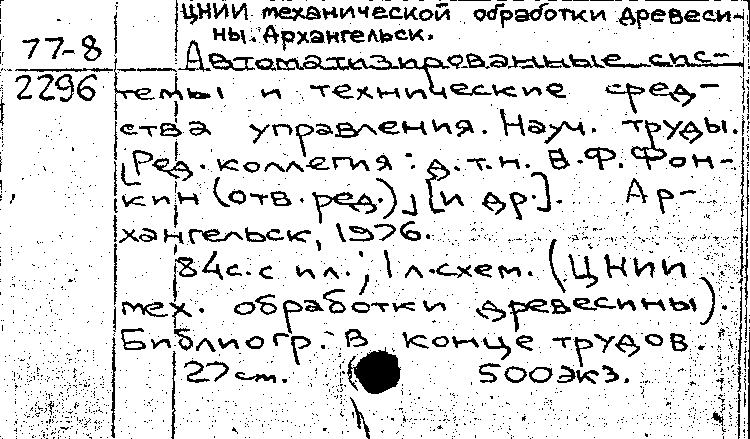 ЦНИИ механической обработки древеси-
ны. Архангельск.
77-8
Автоматизированные сис-
2296
темы и технические сред-
ства управления. Науч. труды.
[Ред. коллегия: д.т.н. В.Ф. Фон-
кин (отв. ред.)] [и др.]. Ар-
хангельск, 1976.
84с. с ил.; 1 л. схем. (ЦНИИ
мех. обработки древесины).
Библиогр. в конце трудов.
27см. 500экз.